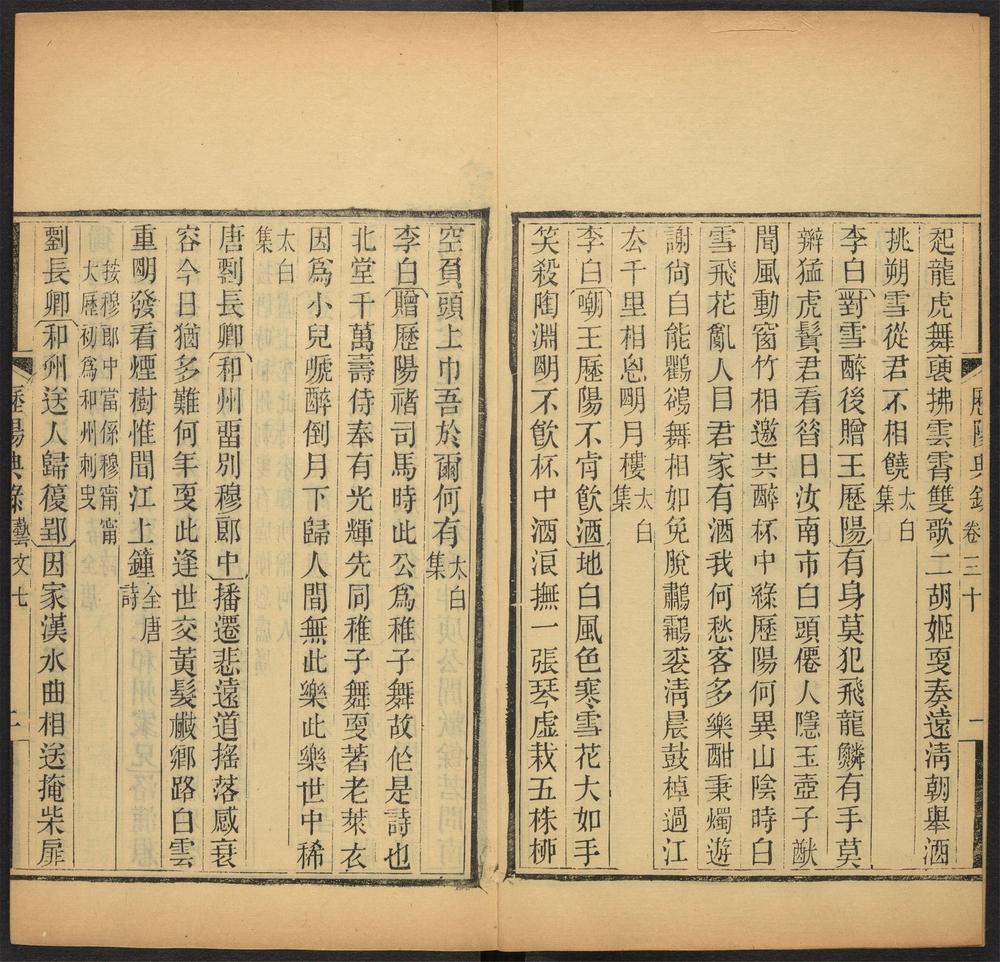 歷陽典錄 卷三十 一
起龍虎舞褏拂雲霄雙歌二胡姬更奏遠淸朝舉酒
挑朔雪從君不相饒太白集
李白對雪醉後贈王歷陽有身莫犯飛龍鱗有手莫
辮猛虎鬚君看昔日汝南市白頭僊人隱玉壺子猷
聞風動窗竹相邀共醉杯中綠歷陽何異山陰時白
雪飛花亂人目君家有酒我何愁客多樂酣秉燭遊
謝尙自能鸜鵒舞相如免脫鷫鸘裘淸晨鼓棹過江
去千里相思明月樓太白集
李白嘲王歷陽不肯飮酒地白風色寒雪花大如手
笑殺陶淵明不飮杯中酒浪撫一張琴虛栽五株柳
空負頭上巾吾於爾何有太白集
李白贈歷陽禇司馬時此公爲稚子舞故作是詩也
北堂千萬壽侍奉有光輝先同稚子舞更著老萊衣
因爲小兒嗁醉倒月下歸人間無此樂此樂世中稀
太白集
唐劉長卿和州留別穆郞中播遷悲遠道搖落感衰
容今日猶多難何年更此逢世交黃髮櫢鄉路白雲
重明發看煙樹惟聞江上鐘全唐詩
按穆郎中當係穆甯甯
大歷初爲和州刺史
劉長卿和州送人歸復郢因家漢水曲相送掩柴扉
歷陽典錄 藝文七 二